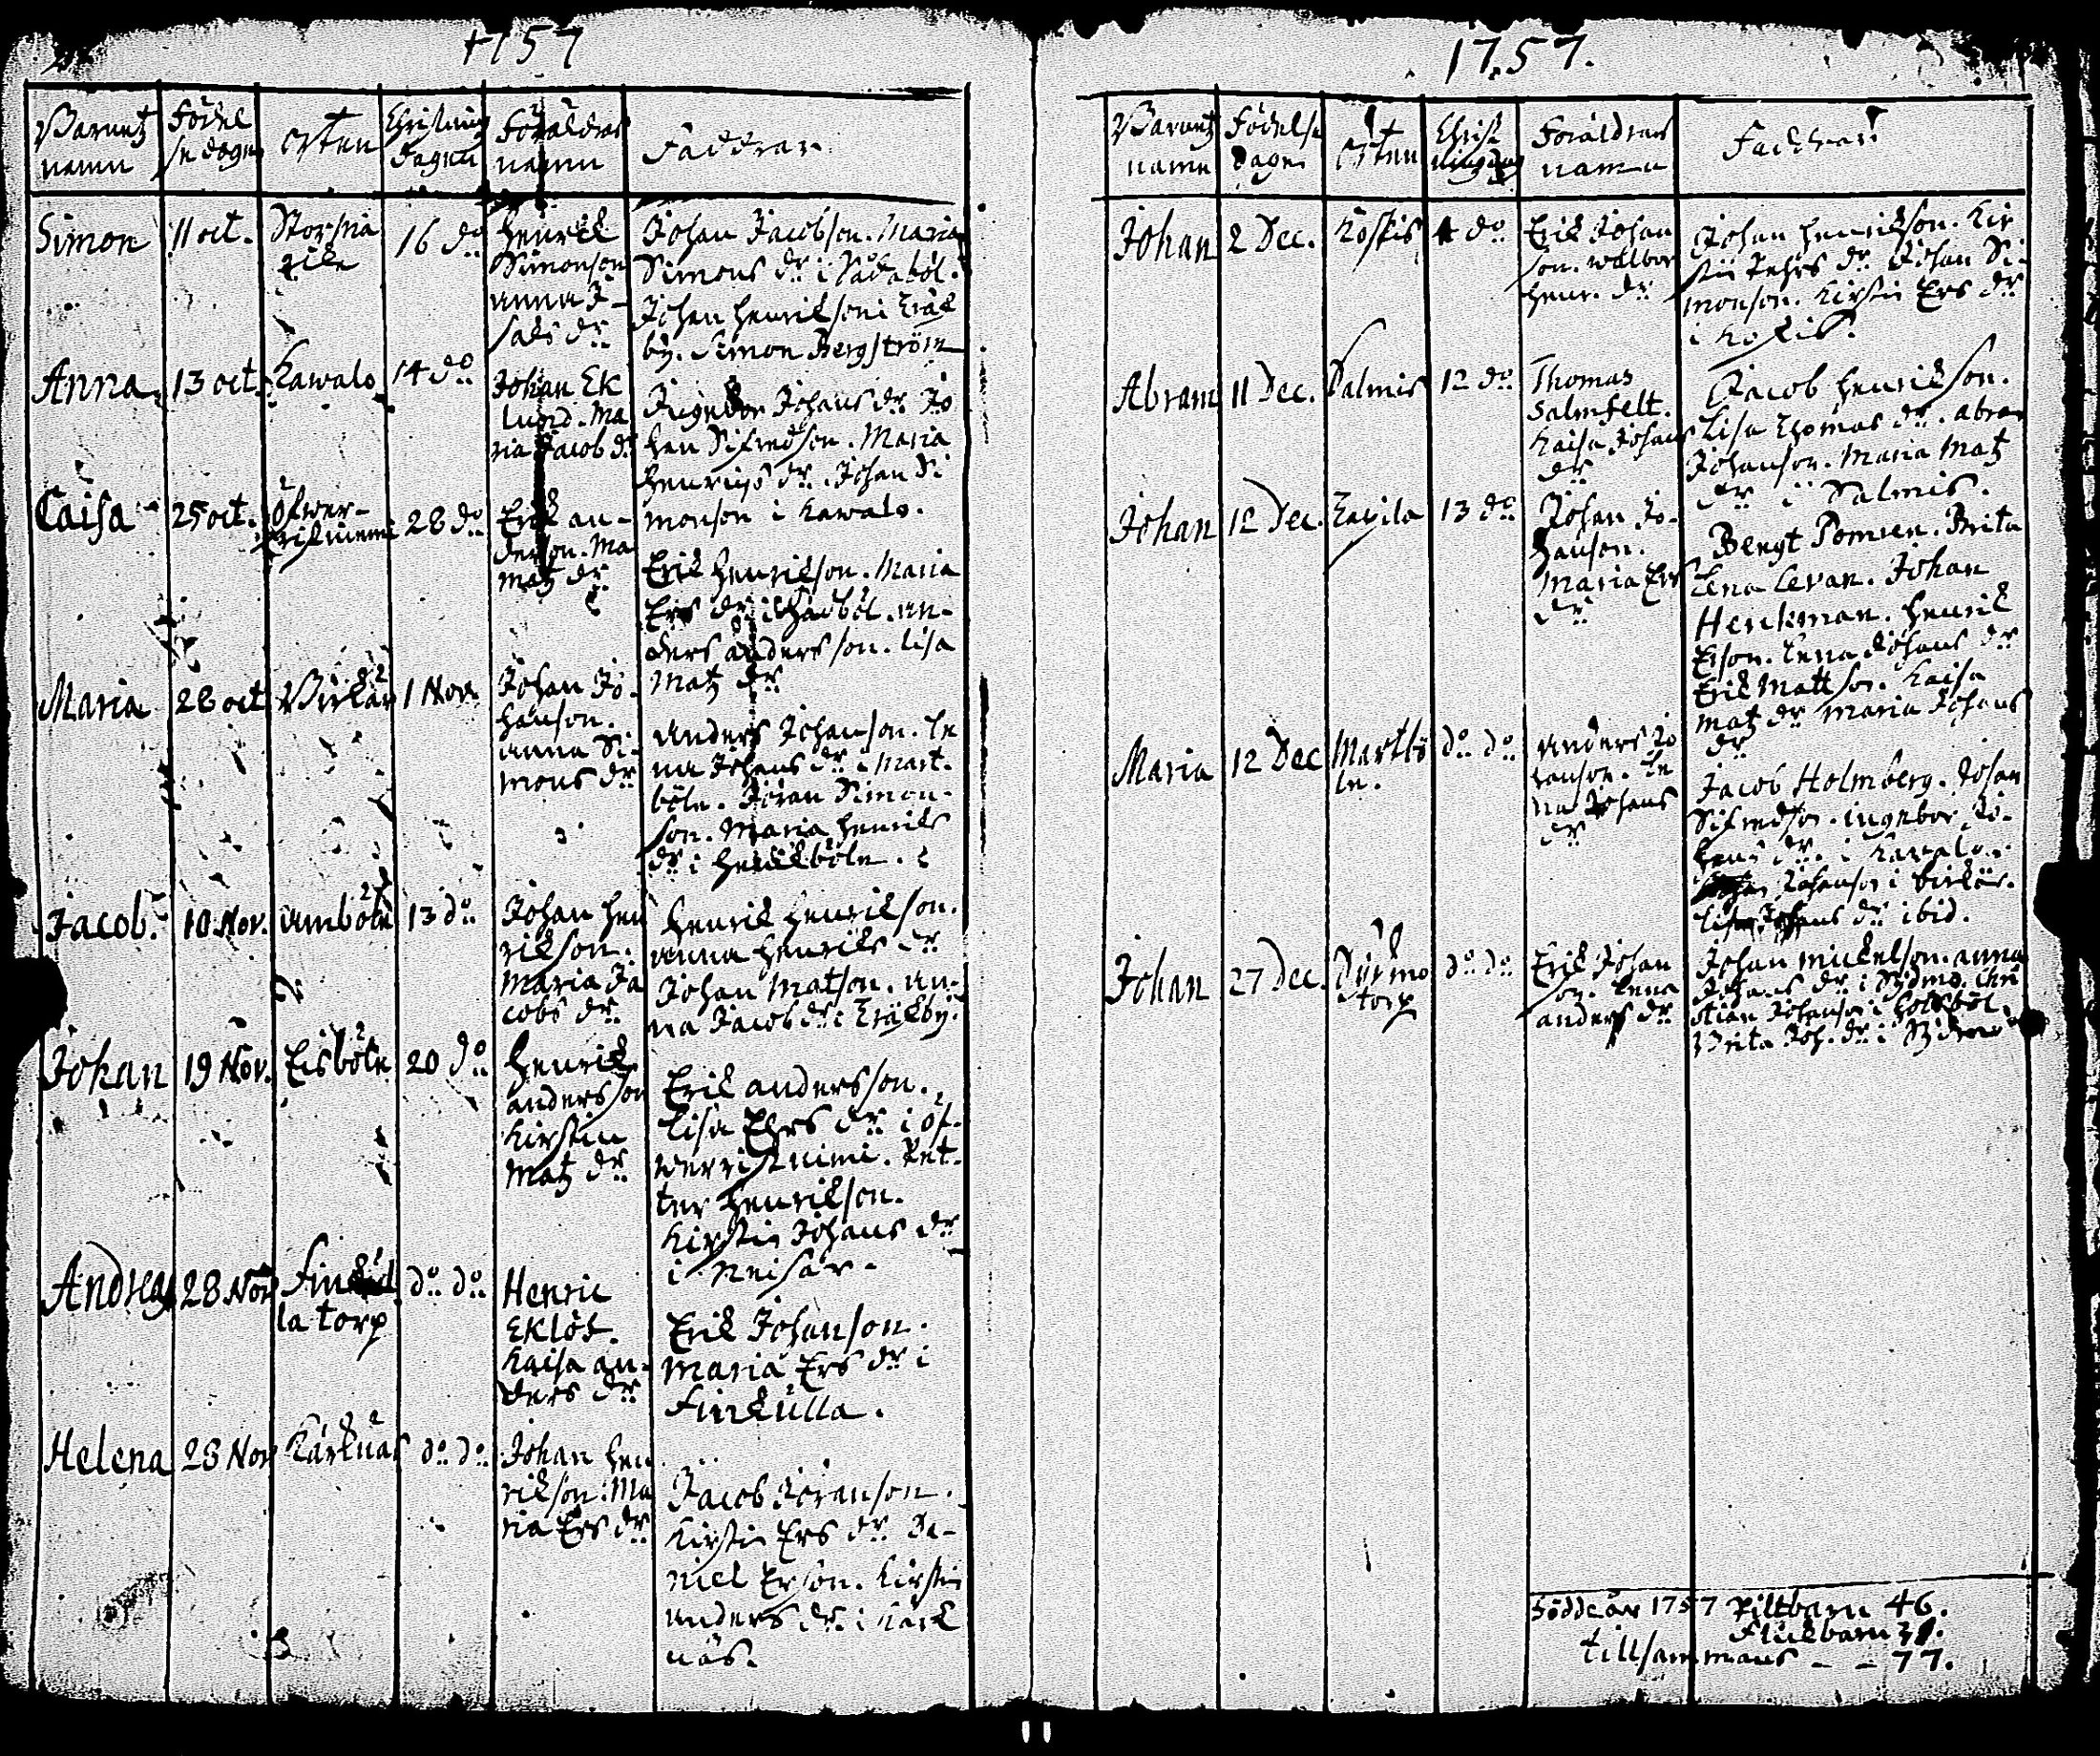 1757
Barnetz
namn
Födel
se dagen
orten
Christnings
dagen
Föräldrars
namn
Faddrar
Simon
11 oct.
16 do
Henrik
Simonson
anna I-
saks dr
Johan Jacobson. Maria
Simons dr i
Johan Henrikson i Träsk
by. Simon Bergström
Anna
13 oct.
Kawalo
14 do
Johan Ek
lund. Ma
ria Jacob dr
Ingebor Johans dr Jo
han Sifredson. Maria
Henrichs dr. Johan Si
monson i Kawalo.
Caisa
25 oct.
Öfwer-
28 do
Erik an-
derson. Ma
Matz dr
Erik Henrikson. Maria
Ers dr i
ders andersson. Lisa
Matz dr
Maria
28 oct
1 Nov.
Johan Jo-
hanson.
anna Si-
mons dr
anders Johanson. Le
na Johans dr i Mart-
böle. Jöran Simon-
son. Maria Henriks
dr i
Jacob.
10 Nov.
amböle
13 do
Johan Hen
rikson.
Maria Ja
cobs dr
Henrik Henrikson.
anna Henriks dr
Johan Matson. an-
na Jacob dr i Träskby.
Johan
19 Nov.
Eisböle
20 do
Henrik
andersson
Kirstin
Matz dr
Erik andersson.
Lisa Ehrs dr i öf-
Pet-
ter Henrikson.
Kirstin Johans dr
i
Andreas
28 Nov
la torp
do do
Henric
Eklöf.
Kaisa an-
ders dr
Erik Johanson.
Maria Ers dr i
Finkulla.
Helena
28 Nov
Kärknäs
do do
Johan Hen
rikson. Ma
ria Ers dr
Jacob Jöranson.
Kirstin Ers dr Da-
niel Erson. Kirstin
anders dr i Kärk
näs.
1757.
Barnetz
namn
Födelse
dagen
orten
Christ
nings dag
Föräldrars
namn
Faddrar
Johan
2 Dec.
Köskis
4 do
Erik Johan
son. Walbor
Henr. dr
Johan Henrikson. Kir
stin Pehrs dr Johan Si-
monson. Kirstin Ers dr
i
Abram
11 Dec.
Salmis
12 do
Thomas
Salmfelt.
Kaisa Johans
dr
Jacob Henrikson.
Lisa Thomas dr. abram
Johanson. Maria Matz
dr i Salmis.
Johan
12 Dec.
13 do
Johan Jo-
hanson.
Maria Ers
dr
Bengt Pomren. Brita
Lena Levan. Johan
Henkman. Henrik
Erson. Lena Johans dr
Erik Mattson. Kaisa
Matz dr Maria Johans
dr
Maria
12 Dec
Martbö
le.
do do
anders Jo
hanson. Le
na Johans
dr
Jacob Holmberg. Johan
Sifredson. ingebor Jo-
hans dr. i Kawalo.
Johanson i
Lisa Johans dr ibid.
Johan
27 Dec.
torp
do do
Erik Johan
son. Lena
anders dr
Johan Mickelson. anna
Johans dr i Chri
stian Johanson i
Brita Joh. dr i
Födde åhr 1757 Piltbarn 46.
Flickbarn 31.
tillsammans - - 77.